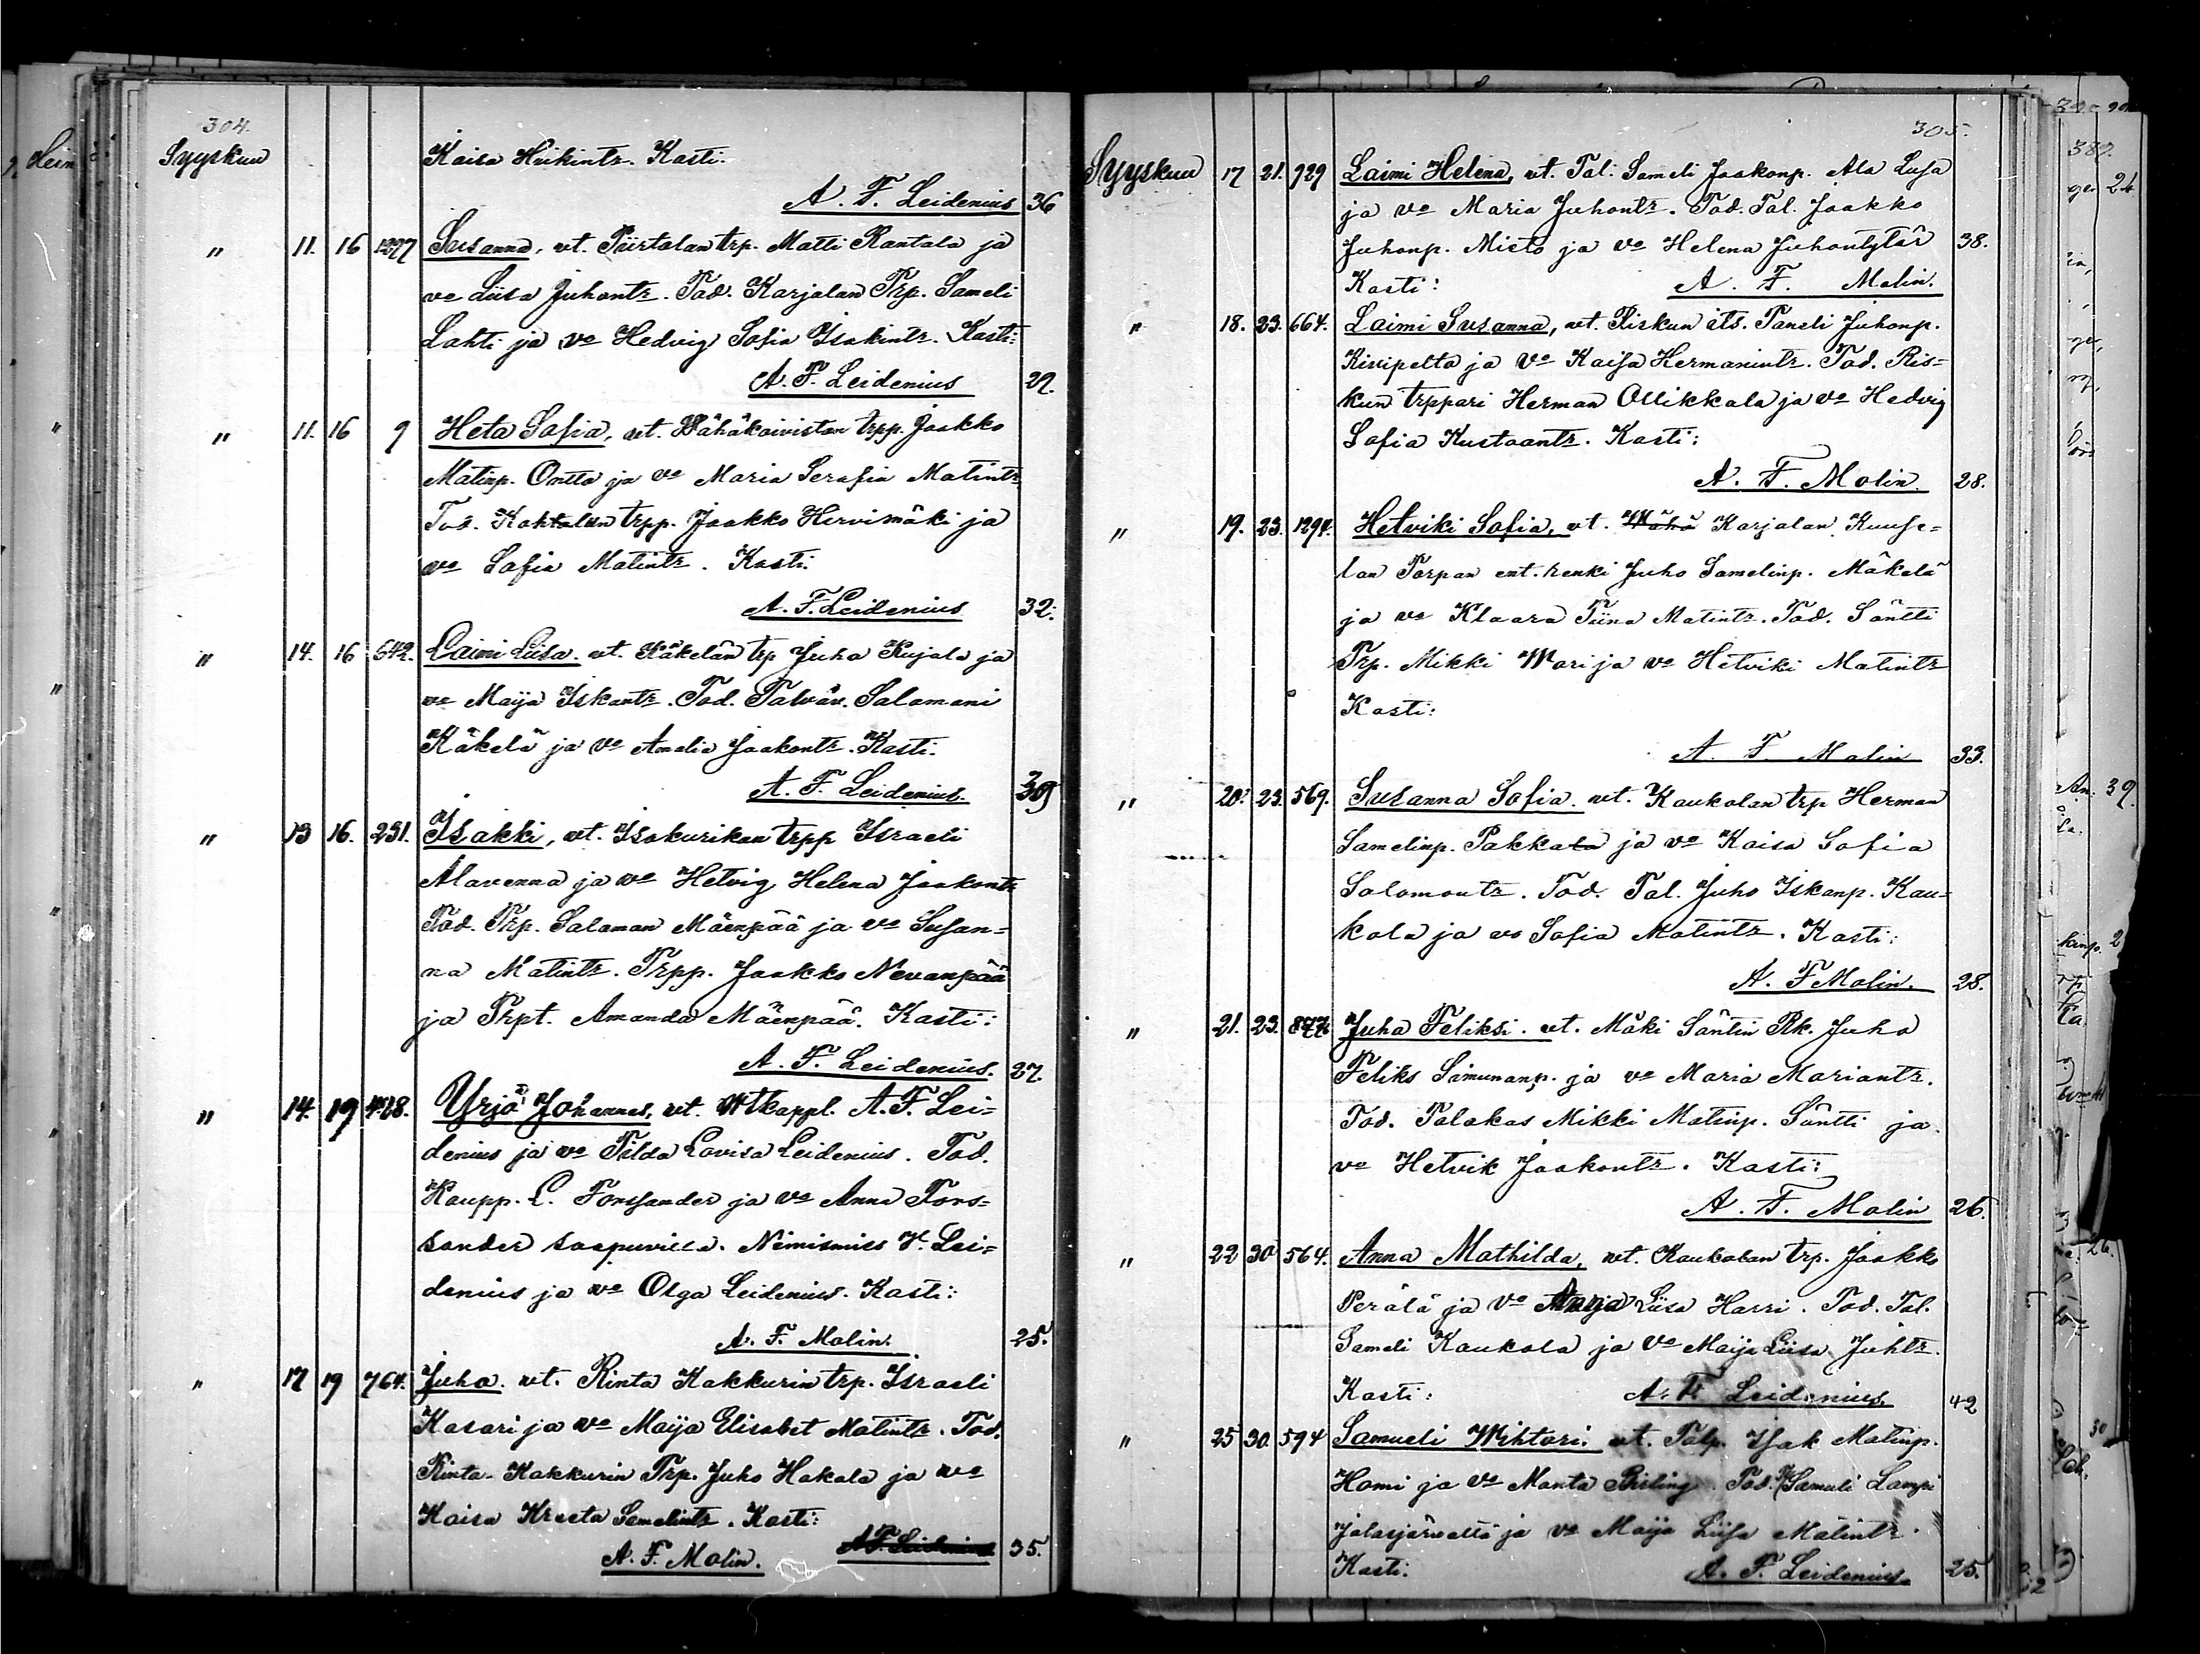 304.
Syyskuu Kaisa Heikintr. Kasti.
A. F. Leidenius 36
" 11. 16 1297 Susanna, vt. Piirtolan trp. Matti Rantala ja
vo Liisa Juhontr. Tod. Karjalan Trp. Sameli
Lahti ja vo Hedvig Sofia Isakintr. Kasti:
A. F. Leidenius 29.
" 11. 16 9 Heta Sofia, vt. Wähäkoiviston trpp. Jaakko
Matinp. Ontto ja vo Maria Serafia Matintr
Tod. Kohtalan trpp. Jaakko Hervismäki ja
vo Sofia Matintr. Kasti.
A. F. Leidenius 32.
" 14. 16 542. Laimi Liisa. vt. Käkelän trp Juha Kujala ja
vo Maija Iskantr. Tod. Talvär. Salamani
Käkelä ja vo Amalia Jaakontr. Kasti.
A. F. Leidenius.
" 13 16. 231. Isakki, vt. Isokurikan trpp Israeli
Alavenna ja vo Hetvig Helena Jaakontr
Tod. Trp. Salaman Mäenpää ja vo Susan=
na Matintr. Trpp. Jaakko Nevanpää
ja Trpt. Amanda Mäenpää. Kasti:
A. F. Leidenius. 27.
" 14. 19 Yrjö Johannes, vt. Wtkappl. A. F. Lei=
denius ja vo Tilda Lovisa Leidenius. Tod.
Kaupp. L. Forssander ja vo Anna Fors=
sander saapuvilla. Nimismies K. Lei=
denius ja vo Olga Leidenius. Kasti:
A. F. Malin. 25.
" 17 19 764. Juha. vt. Rinta Kakkurin trp. Israeli
Kasari ja vo Maija Elisabet Matintr. Tod.
Rinta-Kakkurin Trp. Juho Hakala ja vo
Kaisa Kreeta Samelintr. Kasti:
A. F. Malin. A F Leidenius 35.
305.
Syyskuu 17 21. 929 Laimi Helena, vt. Tal. Sameli Jaakonp. Ala Lusa
ja vo Maria Juhontr. Tod. Tal. Jaakko
Juhonp. Misto ja vo Helena Juhontytär 38.
Kasti: A. F. Malin.
" 18. 23. 664. Laimi Susanna, vt. Riskun its. Taneli Juhonp.
Kivipelto ja vo Kaisa Hermanintr. Tod. Ris=
kun trppari Herman Ollikkala ja vo Hedvig
Sofia Kustaantr. Kasti:
A. F. Malin. 28.
" 19. 23. 1294. Hetviki Sofia, vt. Wähä Karjalan Kuuse=
lan Torpan ent. renki Juho Samelinp. Mäkelä
ja vo Klaara Tiina Matintr. Tod. Säntti
Trp. Mikki Wari ja vo Hetviki Matintr
Kasti:
A. F. Malin 33.
" 20. 23. 569. Susanna Sofia. vt. Kaukolan trp Herman
Samelinp. Pakkala ja vo Kaisa Sofia
Salomontr. Tod. Tal. Juho Iskanp. Kau=
kola ja vo Sofia Matintr. Kasti:
A. F Malin. 28.
" 21. 23. Juha Feliksi. vt. Mäki Säntin Rk. Juha
Feliks Simunanp. ja vo Maria Mariantr.
Tod. Talakas Mikki Matinp. Säntti ja
vo Hetvik Jaakontr. Kasti:
A. F. Malin 26.
" 22 30 564. Anna Mathilda, vt. Kaukolan trp. Jaakko
Perälä ja vo Liisa Harri. Tod. Tal.
Sameli Kaukola ja vo Maija Liisa Juhtr.
Kasti: A. F. Leidenius. 42
" 25 30. 594 Samueli Wihtori. vt. Talp. Isak Matinp.
Homi ja vo Manta Tod. Samuli Lampi
Jalasjärveltä ja vo Maija Liisa Matintr.
Kasti. A. F. Leidenius. 25.